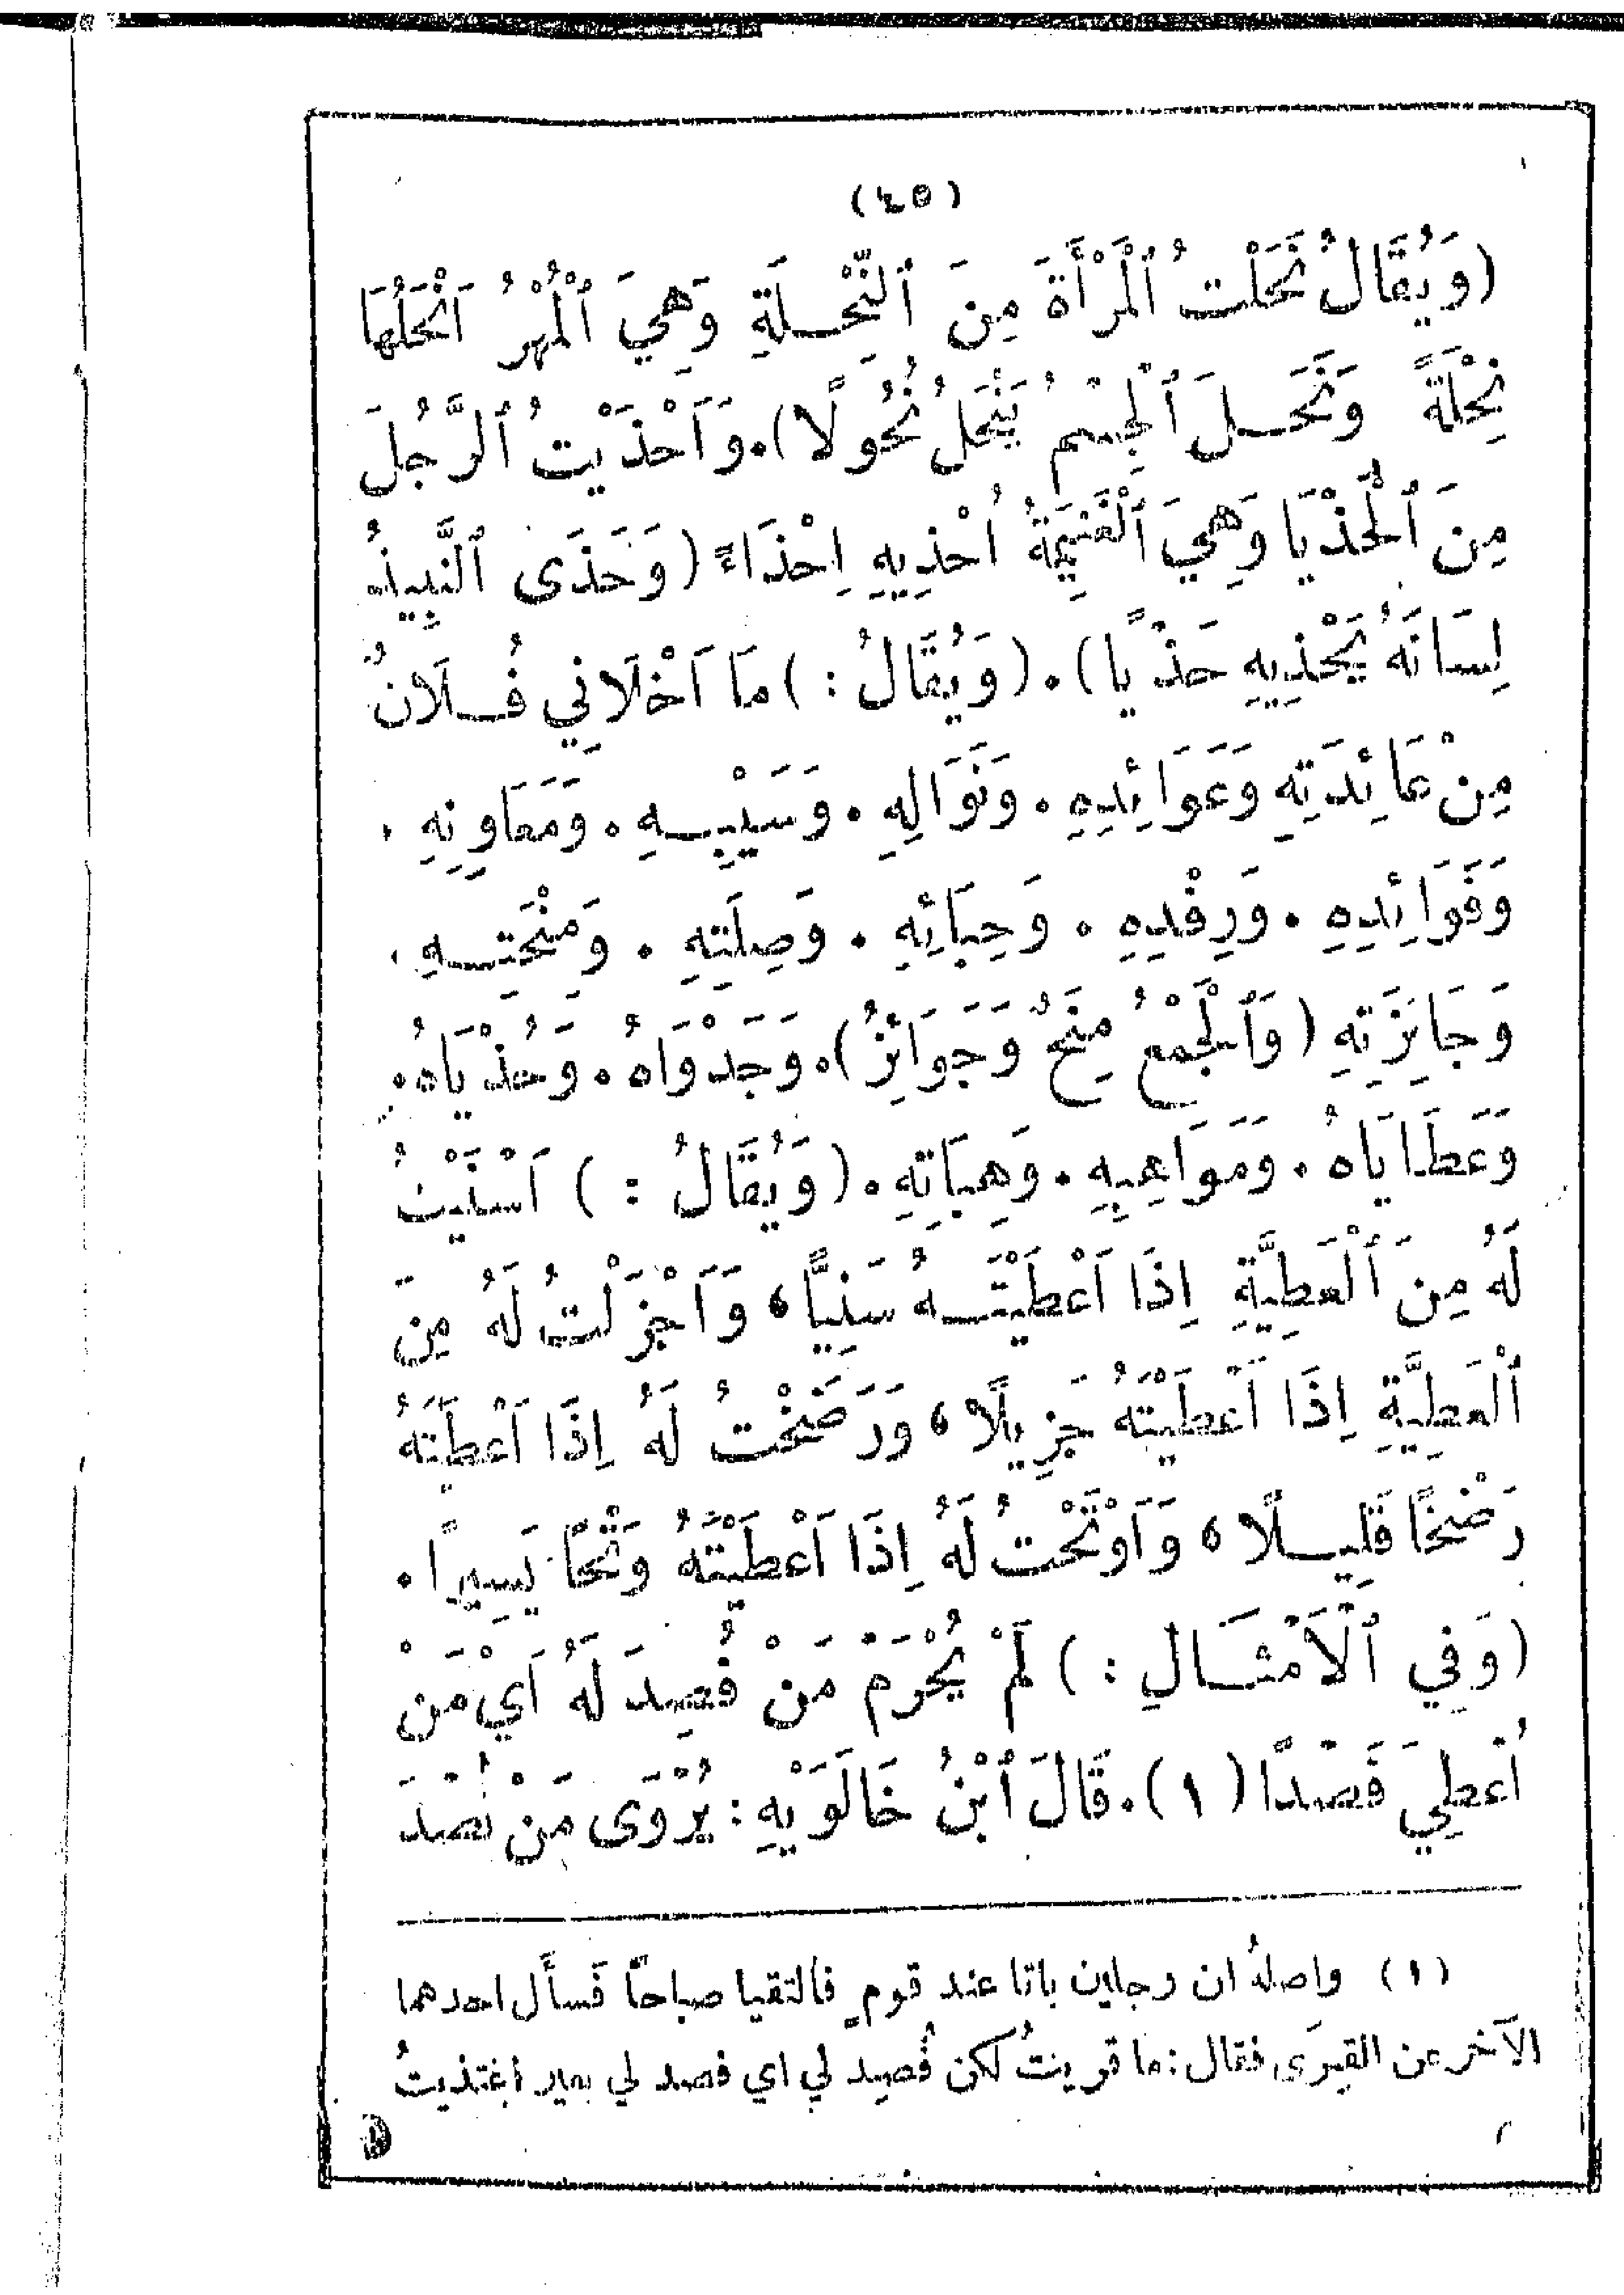 (٤٥)
(وَيُقَالُ نَحَلْتُ ٱلْمَرْأَةَ مِنَ ٱلنِّحْلَةِ وَهِيَ ٱلْمَهْرُ اَنْحَلُهَا
نِحْلَةً وَنَحَلَ ٱلْجِسْمُ يَنْحَلُ نُحُولًا). وَاَحْذَيْتُ ٱلرَّجُلَ
مِنَ ٱلْحُذْيَا وَهِيَ ٱلْغَنِيمَةُ اُحْذِيهِ اِحْذَاءً (وَحَذَى ٱلنَّبِيذُ
لِسَانَهُ يَحْذِيهِ حَذْيًا). (وَيُقَالُ:) مَا اَخْلَانِي فُلَانٌ
مِنْ عَائِدَتِهِ وَعَوَائِدِهِ. وَنَوَالِهِ. وَسَيْبِهِ. وَمَعَاوِنِهِ.
وَفَوَائِدِهِ. وَرِفْدِهِ. وَحِبَائِهِ. وَصِلَتِهِ. وَمِنْحَتِهِ.
وَجَائِزَتِهِ (وَٱلْجَمْعُ مِنَحٌ وَجَوَائِزُ). وَجَدْوَاهُ. وَحُذْيَاهُ.
وَعَطَايَاهُ. وَمَوَاهِبِهِ. وَهِبَاتِهِ. (وَيُقَالُ:) اَسْنَيْتُ
لَهُ مِنَ ٱلْعَطِيَّةِ اِذَا اَعْطَيْتَهُ سَنِيًّا، وَاَجْزَلْتُ لَهُ مِنَ
ٱلْعَطِيَّةِ اِذَا اَعْطَيْتَهُ جَزِيلًا، وَرَضَخْتُ لَهُ اِذَا اَعْطَيْتَهُ
رَضْخًا قَلِيلًا، وَاَوْتَحْتُ لَهُ اِذَا اَعْطَيْتَهُ وَتْحًا يَسِيرًا.
(وَفِي ٱلْاَمْثَالِ:) لَمْ يُحْرَمْ مَنْ فُصِدَ لَهُ اَيْ مَنْ
اُعْطِيَ فَصْدًا (١). قَالَ ٱبْنُ خَالَوَيْهِ: يُرْوَى مَنْ فُصْدَ
(١) واصلهُ ان رجلين باتا عند قومٍ فالتقيا صباحًا فَسأَل احدهما
الآخر عن القِرَى فقال: ما قريتُ لكن فُصِد لي اي فصد لي بعير اغتذيتُ